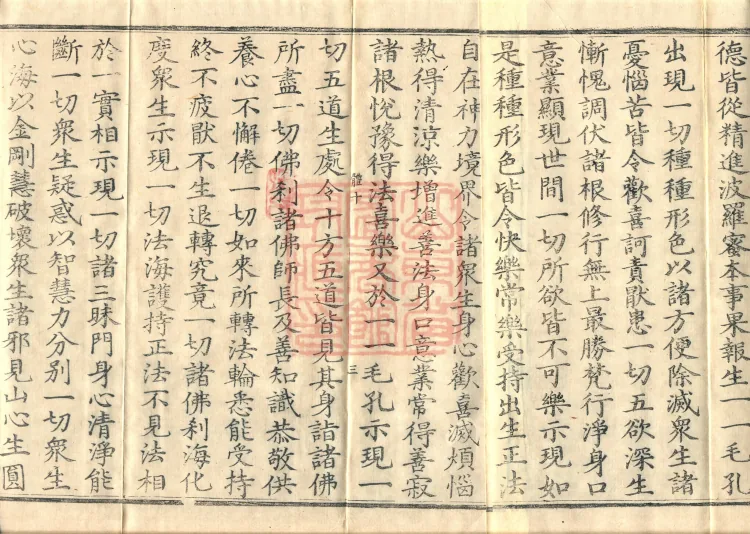 德皆從精進波羅蜜本事果報生一一毛孔
出現一切種種形色以諸方便除滅衆生諸
憂惱苦皆令歡喜訶責厭患一切五欲深生
慚愧調伏諸根修行無上最勝梵行淨身口
意業顯現世間一切所欲皆不可樂示現如
是種種形色皆令快樂常樂受持出生正法
自在神力境界令諸衆生身心歡喜滅煩惱
熱得清涼樂增進善法身口意業常得善寂
諸根悅豫得法喜樂又於一一毛孔示現一
體十 三
切五道生處令十方五道皆見其身詣諸佛
所盡一切佛刹諸佛師長及善知識恭敬供
養心不懈倦一切如來所轉法輪悉能受持
終不疲厭不生退轉究竟一切諸佛刹海化
度衆生示現一切法海護持正法不見法相
於一實相示現一切諸三昧門身心清淨能
斷一切衆生疑惑以智慧力分別一切衆生
心海以金剛慧破壞衆生諸邪見山心生圓